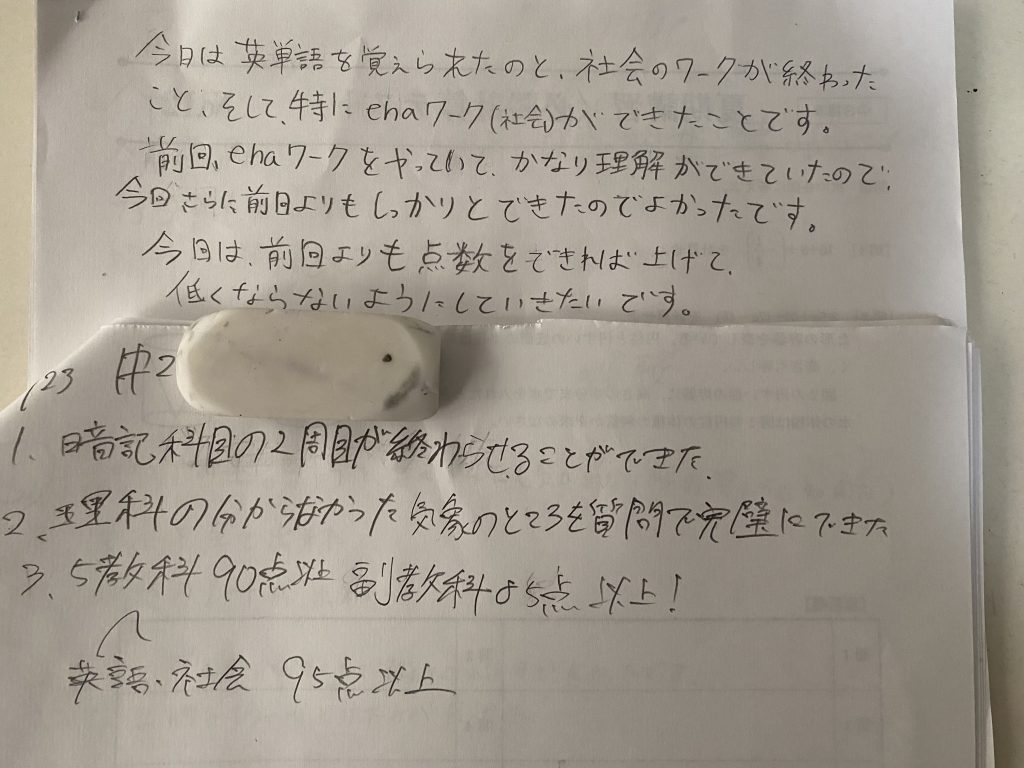 今日は英単語を覚えられたのと、社会のワークが終わった
こと、そして、特にenaワーク(社会)ができたことです。
前回、enaワークをやっていて、かなり理解ができていたので、
今回さらに前回よりもしっかりとできたのでよかったです。
今回は、前回よりも点数をできれば上げて、
低くならないようにしていきたいです。
23 中2
1. 暗記科目の2周目が終わらせることができた.
2、理科の分からなかった気象のところを質問で完璧にできた
3、5教科90点以上 副教科85点以上!
英語・社会 95点以上